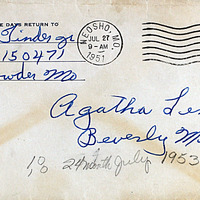 E DAYS RETURN TO
Tinder Jr
150471
owder Mo
NEOSHO, MO.
JUL 27
9-AM
1951
Agatha Le
Beverly M
24 month July 1953